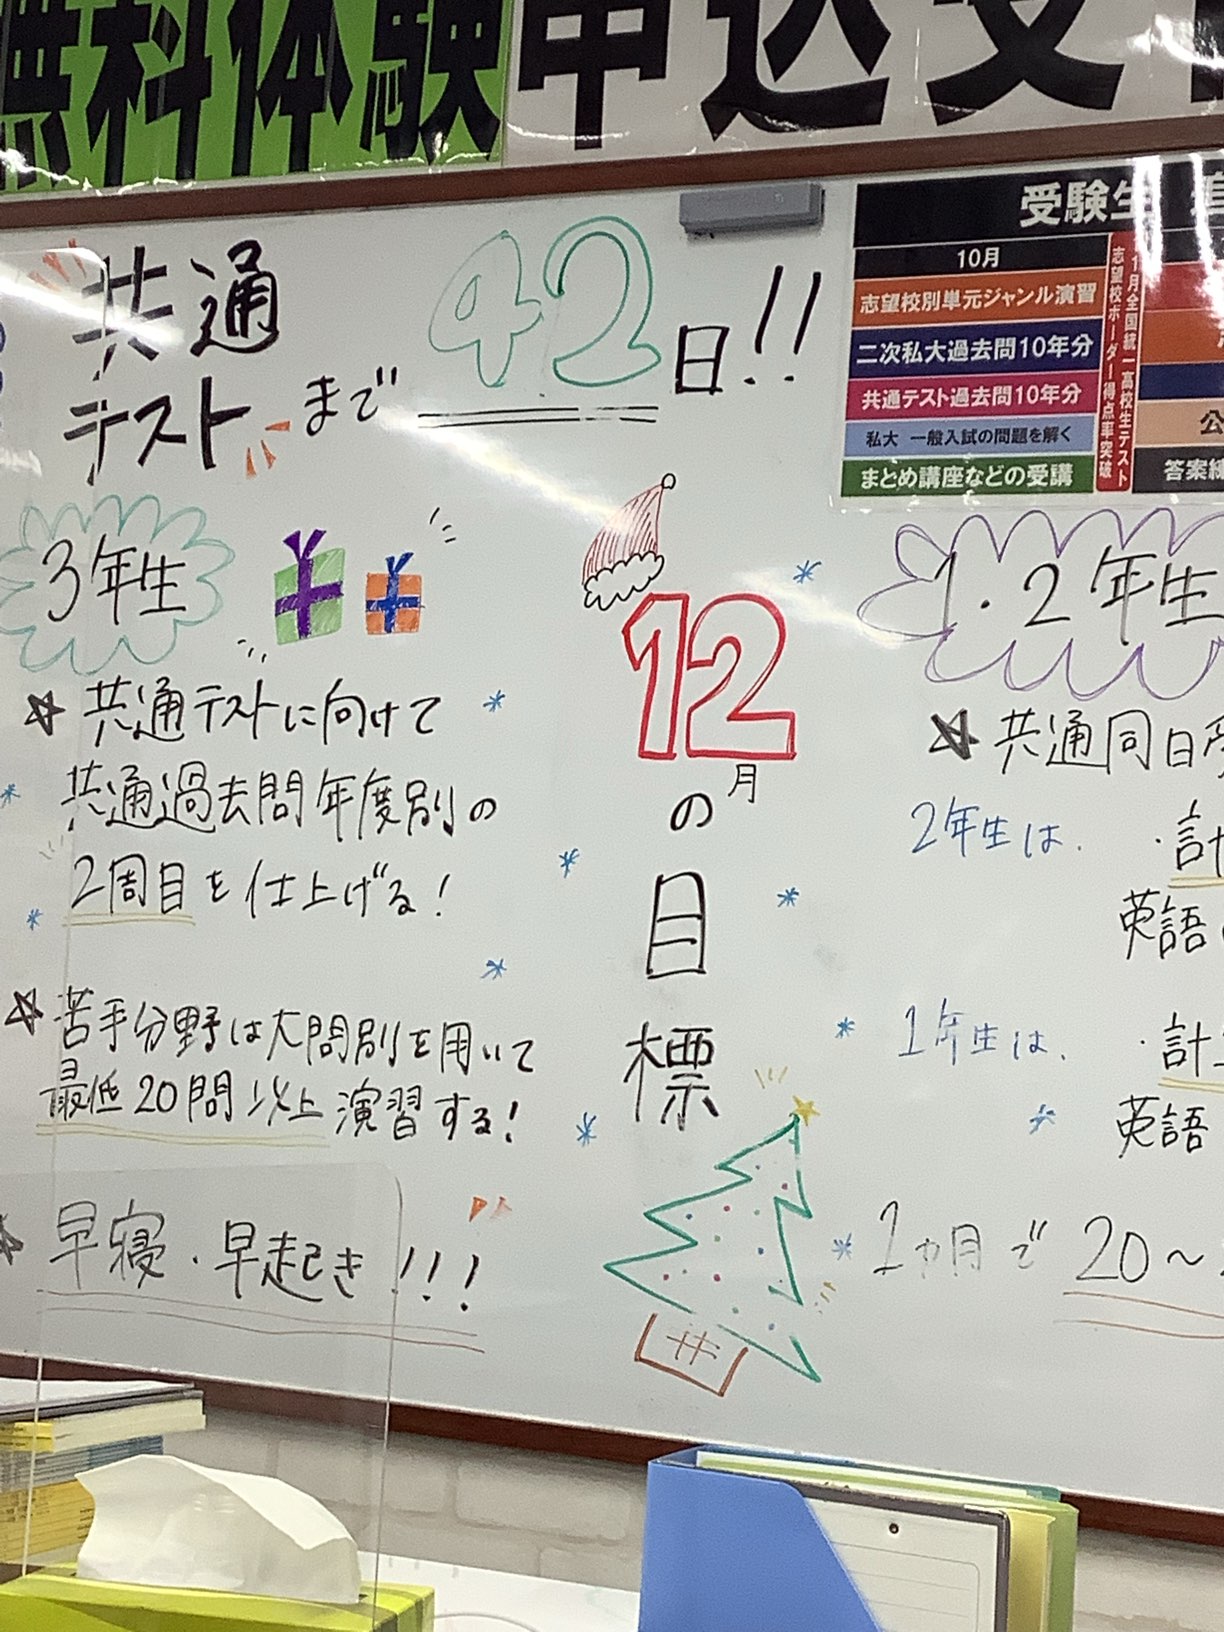 無料体験申込受
共通
テスト まで 42日!!
受験生
10月
志望校別単元ジャンル演習
二次私大過去問10年分
共通テスト過去問10年分
私大 一般入試の問題を解く
まとめ講座などの受講
11月全国統一高校生テスト
志望校ボーダー得点率突破
公
答案練
3年生
☆ 共通テストに向けて
共通過去問年度別の
2周目を仕上げる!
☆ 苦手分野は大問別を用いて
最低20問以上演習する!
☆ 早寝・早起き!!!
12月の目標
1・2年生
☆ 共通同日
2年生は、 ・計
英語
1年生は、 ・計
英語
1ヵ月で 20～